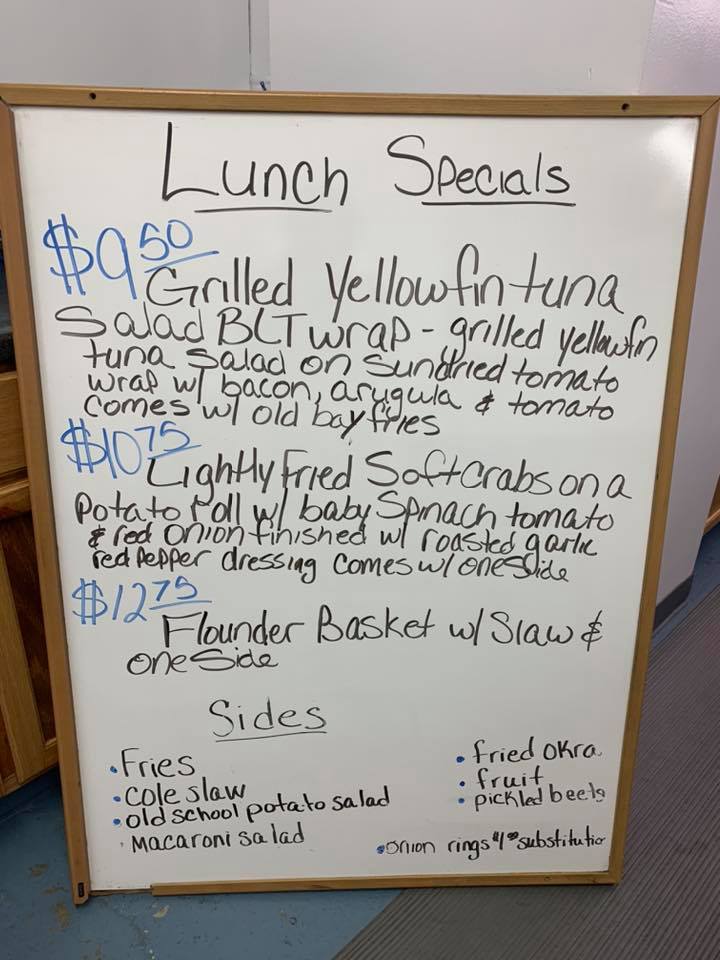 Lunch Specials
$9 50
Grilled Yellowfin tuna
Salad BLT wrap - grilled yellowfin
tuna salad on Sundried tomato
wrap w/ bacon, arugula & tomato
comes w/ old bay fries
$10 75
Lightly Fried Softcrabs on a
potato roll w/ baby Spinach tomato
& red onion finished w/ roasted garlic
red pepper dressing comes w/ one side
$12 75
Flounder Basket w/ Slaw &
one Side
Sides
• Fries
• Cole slaw
• old school potato salad
• Macaroni salad
• fried okra
• fruit
• pickled beets
• onion rings $1 00 substitutio